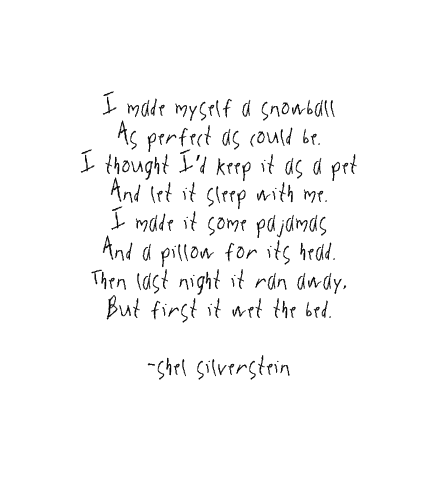 I made myself a snowball
As perfect as could be.
I thought I'd keep it as a pet
And let it sleep with me.
I made it some pajamas
And a pillow for its head.
Then last night it ran away,
But first it wet the bed.
-shel silverstein